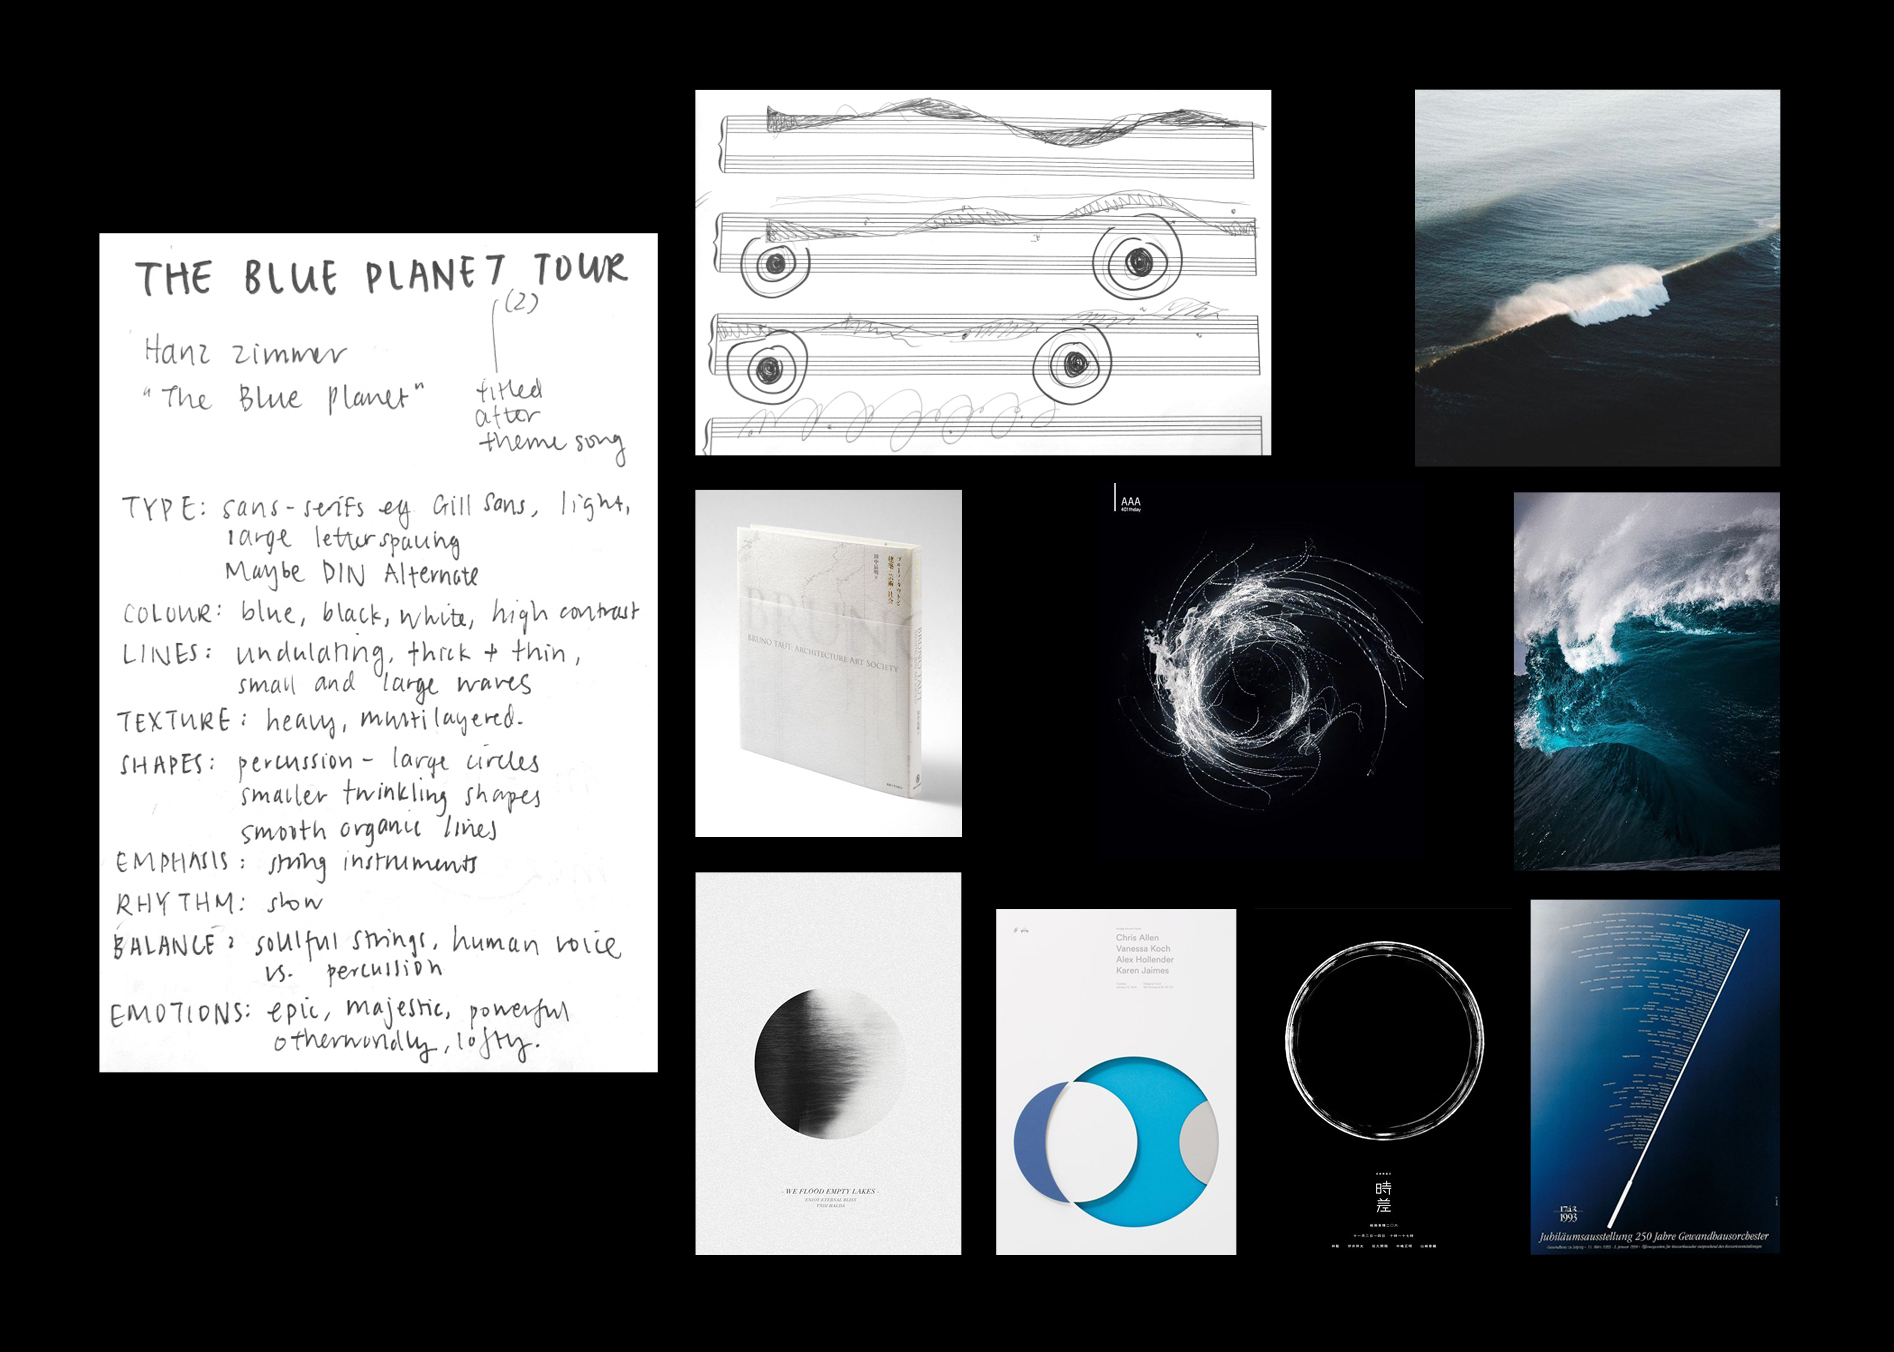 THE BLUE PLANET TOUR
(2)
Hanz zimmer
"The Blue planet"
titled
after
theme song
TYPE: sans-serifs eg Gill Sans, light,
large letterspacing
Maybe DIN Alternate
COLOUR: blue, black, white, high contrast
LINES: undulating, thick + thin,
small and large waves
TEXTURE: heavy, multilayered.
SHAPES: percussion - large circles
smaller twinkling shapes
smooth organic lines
EMPHASIS: string instruments
RHYTHM: slow
BALANCE: soulful strings, human voice
vs. percussion
EMOTIONS: epic, majestic, powerful
otherworldly, lofty.
BRUNO
BRUNO TAUT: ARCHITECTURE ART SOCIETY
AAA
- WE FLOOD EMPTY LAKES -
ENJOY ETERNAL BLISS
YNDI HALDA
Chris Allen
Vanessa Koch
Alex Hollender
Karen Jaimes
時
差
1993
Jubiläumsausstellung 250 Jahre Gewandhausorchester